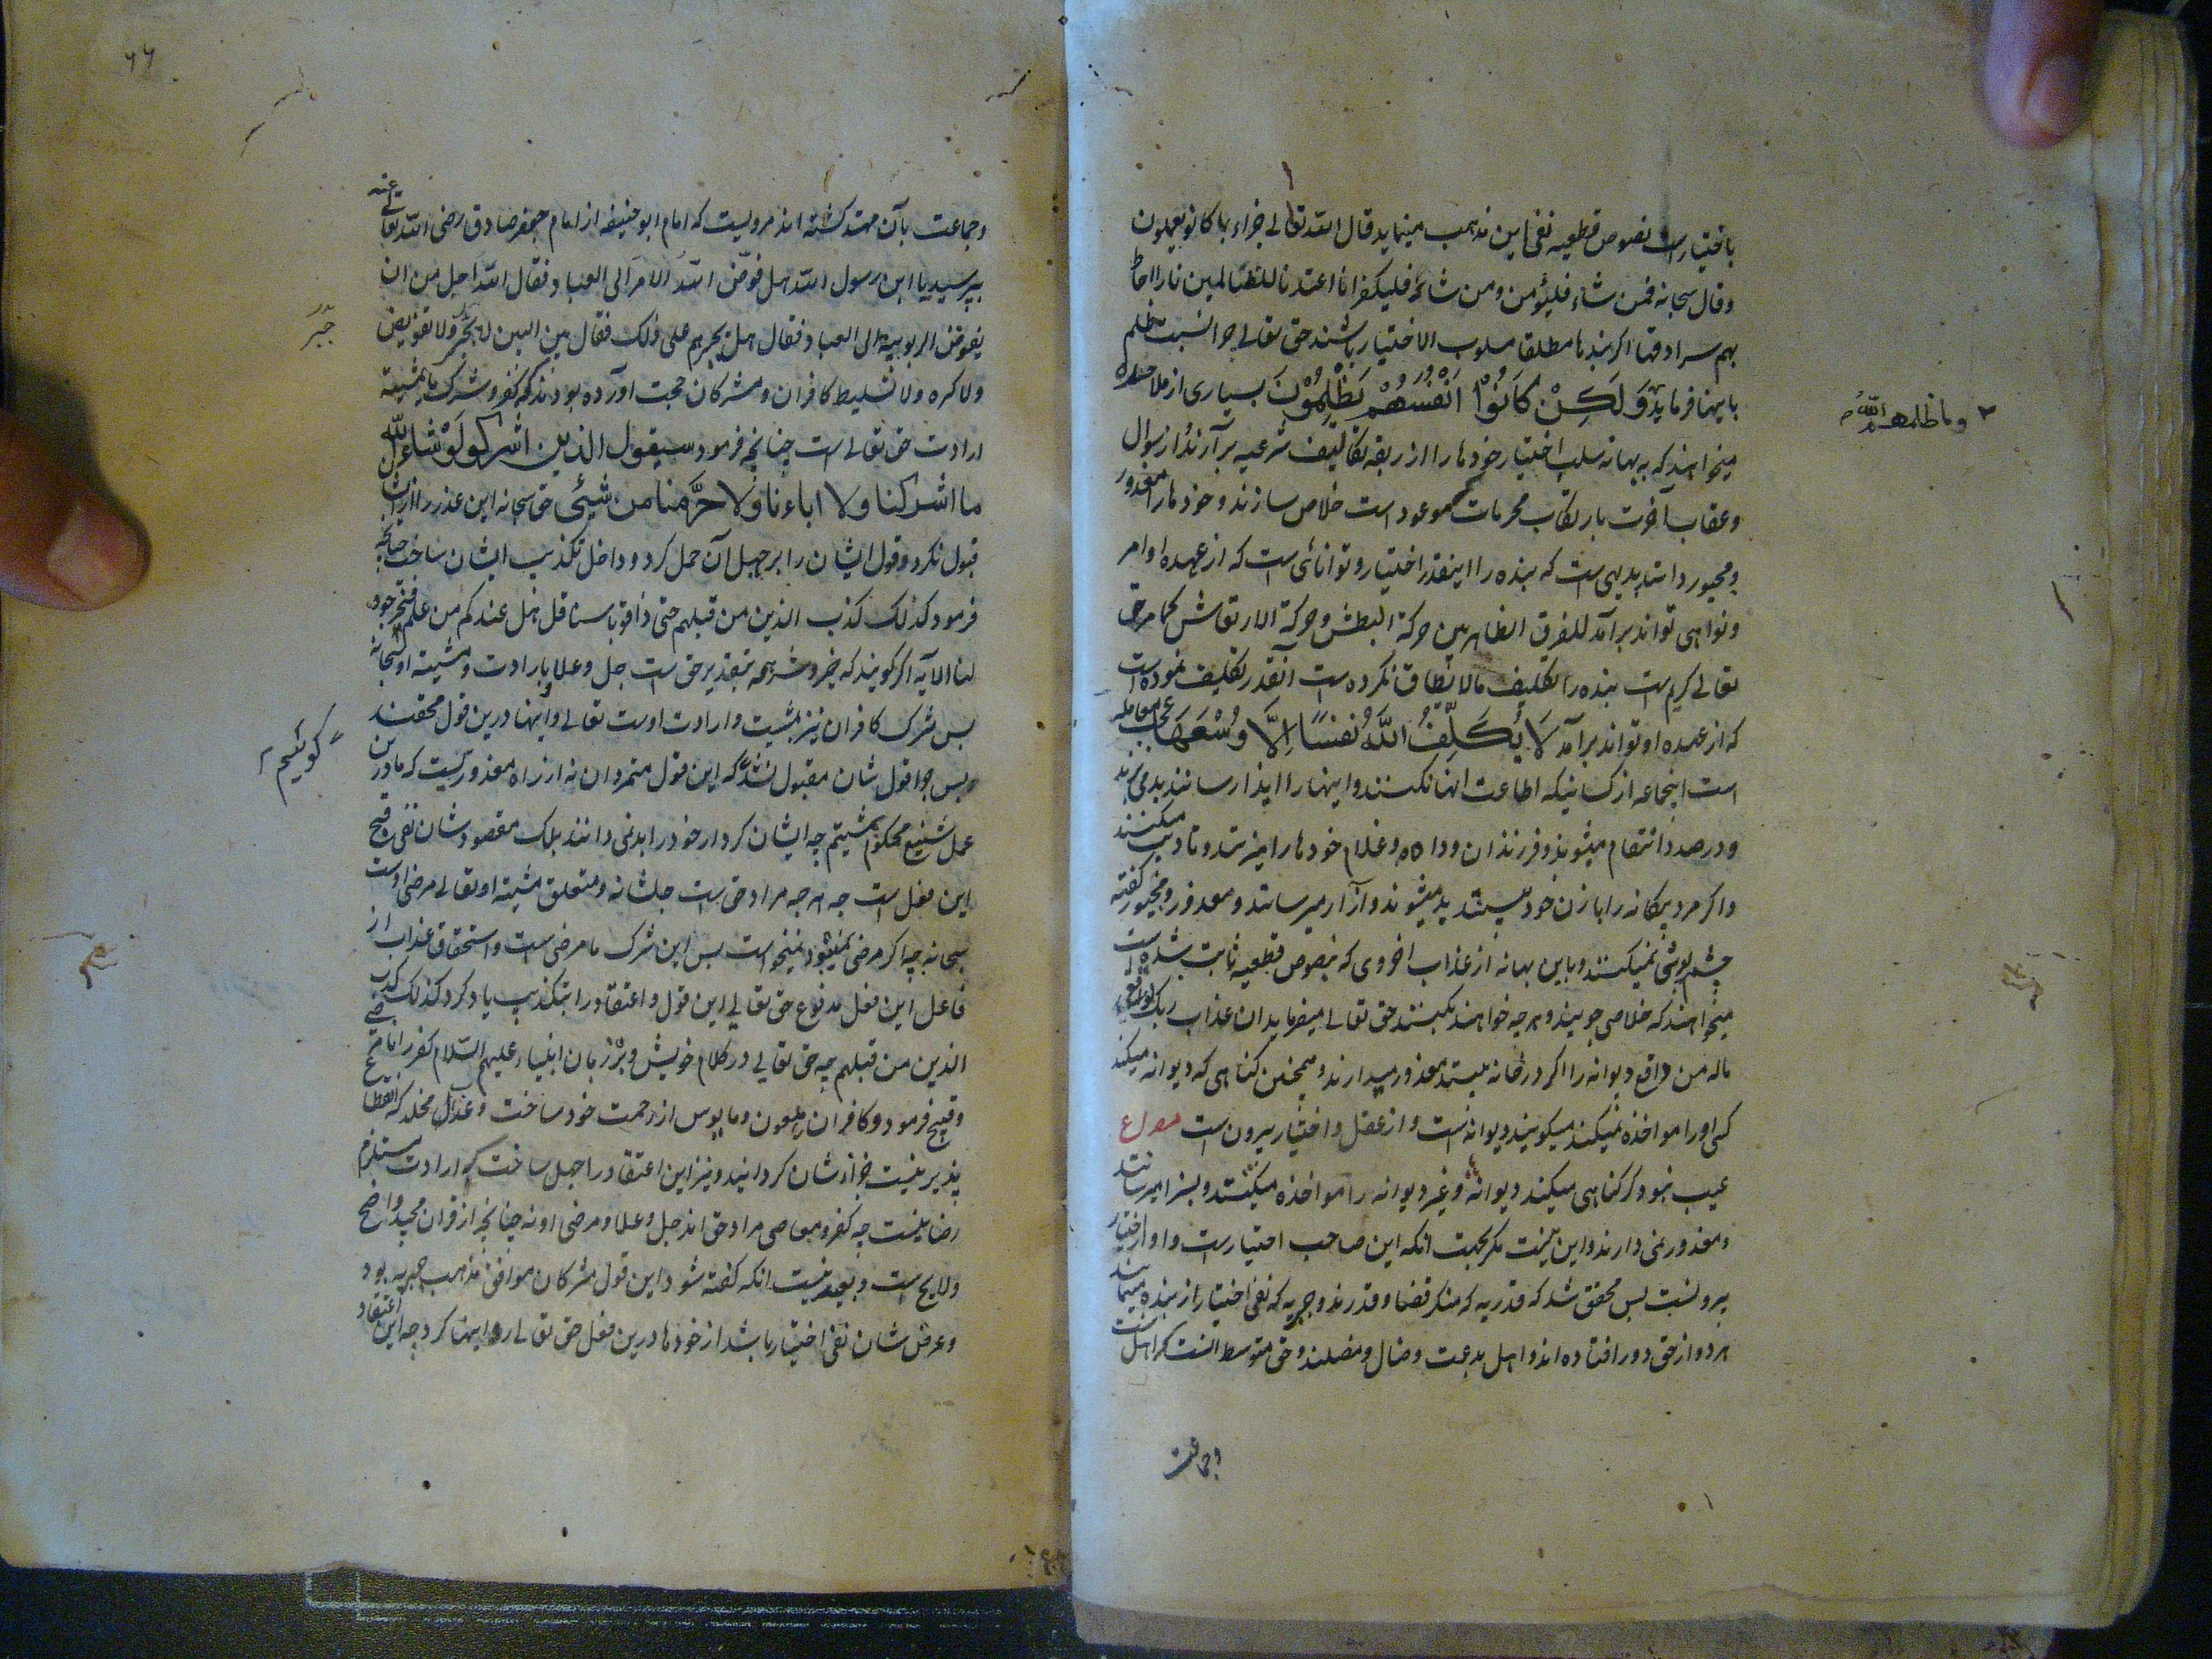 باختیارست نصوص قطعیه نفی این مذهب مینماید قال الله تعالی جزاء بما کانو یعملون
وقال سبحانه فمن شاء فلیؤمن ومن شاء فلیکفر انا اعتدنا للظالمین نارا احاط
بهم سرادقها اگر بندها مطلقا مسلوب الاختیار باشند حق تعالی چرا نسبت ظلم
باینها فرماید وَلَكِنْ كَانُوْا اَنْفُسَهُمْ يَظْلِمُوْنَ بسیاری از ملاحده
وما ظلمهم اللّٰهُ
میخواهند که به بهانه سلب اختیار خودها را از ربقه تکالیف شرعیه برآرند و از سوال
وعقاب آخرت بارتکاب محرمات موعود است خلاص سازند و خودها را معذور
و مجبور دانند بدیهی ست که بنده را اینقدر اختیار و توانائی ست که از عهده اوامر
و نواهی تواند برآمد للفرق الظاهر بین حرکة البطش و حرکة الارتعاش کما مر حق
تعالی کریم ست بنده را تکلیف مالا یطاق نکرده ست آنقدر تکلیف نموده است
که از عهده او تواند برآمد لَا يُكَلِّفُ اللّٰهُ نَفْسًا اِلَّا وُسْعَهَا عجب معامله
است اینجماعه از کسانیکه اطاعت انها نکنند و اینها را ایذا رسانند بد می برند
و درصدد انتقام میشوند و فرزندان و داه و غلام خودها را میزنند و تادیب میکنند
و اگر مرد بیگانه را بازن خود بینند بد میشوند و آزار میرسانند و معذور و مجبور گفته
چشم پوشی نمیکنند و باین بهانه از عذاب اخروی که بنصوص قطعیه ثابت شده است
میخواهند که خلاصی جویند و هر چه خواهند بکنند حق تعالی میفرماید ان عذاب ربک لواقع
ماله من دافع دیوانه را اگر در خانه بینند معذور میدارند و همچنین گناهی که دیوانه میکند
کسی او را مواخذه نمیکند میگویند دیوانه است و از عقل و اختیار بیرون است مصراع
عیب نبود گر گناهی میکند دیوانه و غیر دیوانه را مواخذه میکنند و بسزا میرسانند
و معذور نمی دارند و این نیست مگر بجهت آنکه این صاحب اختیارست و او از اختیار
بیرونست پس محقق شد که قدریه که منکر قضا و قدرند و جبریه که نفی اختیار از بنده مینمایند
هر دو از حق دور افتاده اند و اهل بدعت و ضال و مضلند و حق متوسط آنست که اهل سنت
وجماعت
٦٦
وجماعت بآن مهتد گشته اند مرویست که امام ابو حنیفه از امام جعفر صادق رضی الله تعالی عنه
بپرسید یا ابن رسول الله هل فوّض اللّٰه الامر الی العباد فقال الله اجل من ان
یفوض الربوبیة الی العباد فقال هل یجبرهم علی ذلک فقال بین البین لا جبر ولا تفویض
جَبْر
ولا کره ولا تسلیط کافران و مشرکان حجت آورده بودند که کفر و شرک ما بمشیة
ارادت حق تعالی ست چنانچه فرمود سیقول الذین اشرکو لَوْ شاءَ اللّٰه
ما اشرکنا ولا اباءنا وَلا حَرَّمنا من شیئی حق سبحانه این عذر را از ایشان
قبول نکرد و قول ایشان را بر جهل آن حمل کرد و داخل تکذیب ایشان ساخت چنانچه
فرمود کذلک کذب الذین من قبلهم حتی ذاقو باسنا قل هل عندکم من علم فتخرجوه
لنا الآیه اگر گویند که خیر و شر همه بتقدیر حق ست جل وعلا بارادت و مشیت او سبحانه
پس شرک کافران نیز بمشیت و ارادت اوست تعالی و اینها درین قول محقند
پس چرا قول شان مقبول نشد که این قول متمردان نه از راه معذوریست که مادرین
گوئیم
عمل شنیع محکوم مشیتم چه ایشان کردار خود را بد نمی دانند بلک مقصود شان نفی قبح
این فعل است چه هر چه مراد حق ست جلشانه و متعلق مشیته او تعالی مرضی اوست
سبحانه چه اگر مرضی نمیبود نمیخواست پس این شرک ما مرضی ست و استحقاق عذاب از
فاعل این فعل مدفوع حق تعالی این قول و اعتقاد را بتکذیب یاد کرد کذلک کذب
الذین من قبلهم چه حق تعالی در کلام خویش و بر زبان انبیاء علیهم السّلام کفر را نامرضی
و قبیح فرمود و کافران را ملعون و مایوس از رحمت خود ساخت و عذاب مخلد که انقطاع
پذیر نیست جزاء شان گردانید و نیز این اعتقاد را جهل ساخت که ارادت مستلزم
رضا نیست چه کفر و معاصی مراد حق اند جل وعلا و مرضی او نه چنانچه از قران مجید واضح
ولایح ست و بعید نیست انکه گفته شود این قول مشرکان موافق مذهب جبریه بود
و غرض شان نفی اختیار باشد از خودها درین فعل حق تعالی رد اینها کرد چه این اعتقاد